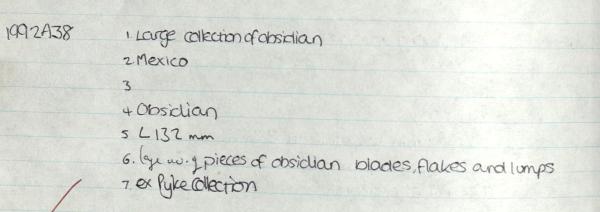 1992A38 1. Large collection of obsidian
2 Mexico
3
4 Obsidian
5 L 132 mm
6. lge no. of pieces of obsidian blades, flakes and lumps
7. ex Pyke Collection